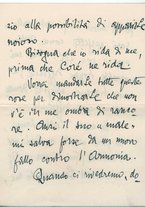 zio alla possibilità di apparirle
noioso.
Bisogna che io rida di me,
prima che Corè ne rida.
Vorrei mandarle tutte queste
rose per dimostrarle che non
v'è in me ombra di ranco-
re. Anzi il suo "male"
mi salva forse da un mor
fallo contro l'Armonia.
Quando ci rivedremo, do-